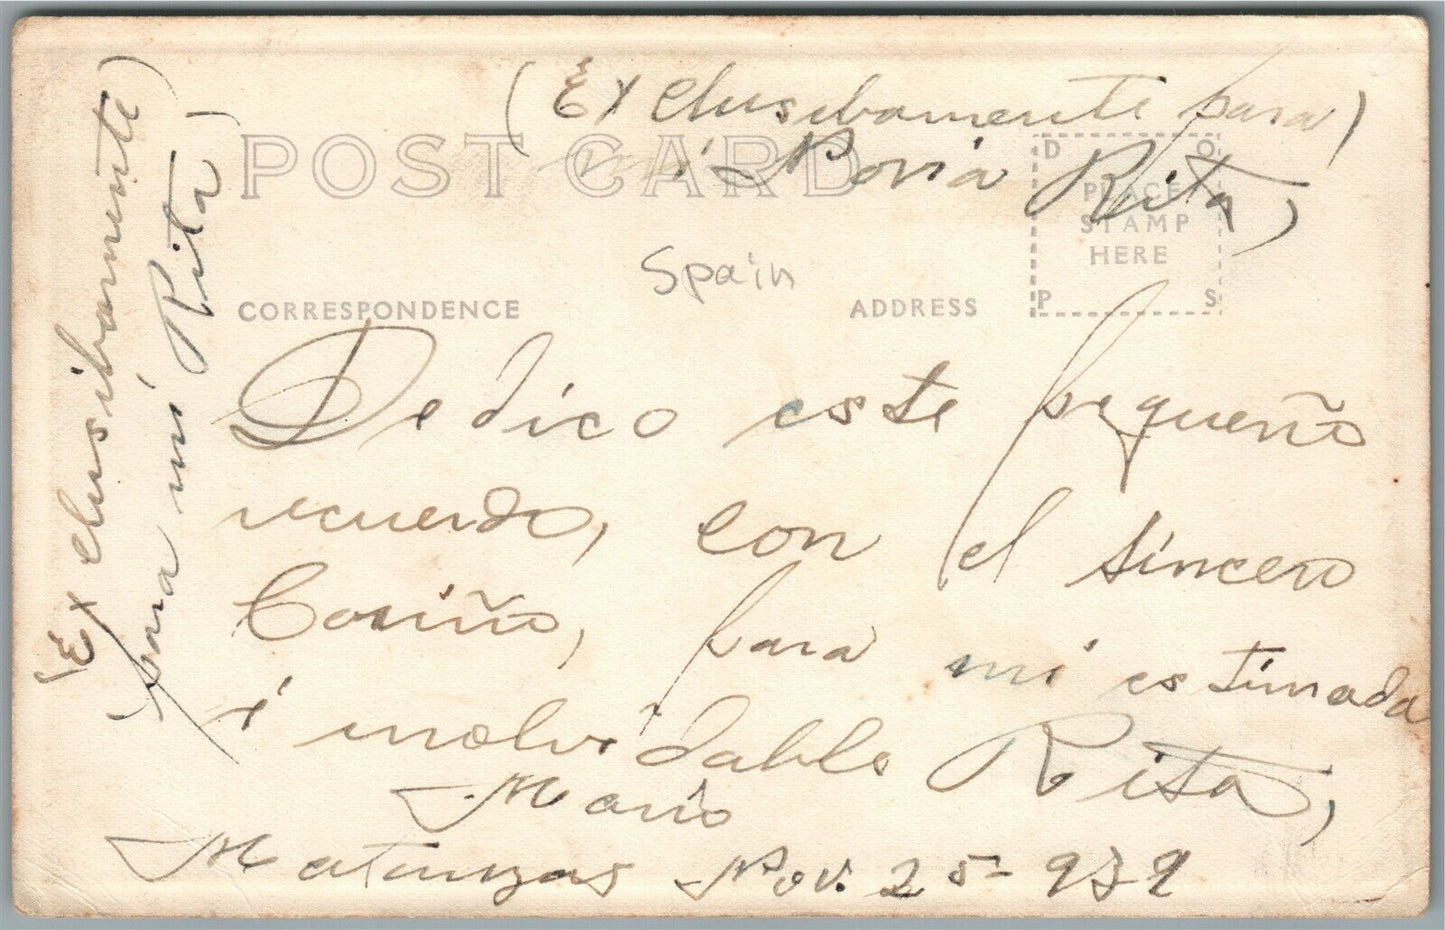 (Exclusibamente para)
mi Novia Rita,
POST CARD
D O
PLACE
STAMP
HERE
P S
Spain
CORRESPONDENCE
ADDRESS
Dedico este pequeño
recuerdo, con el sincero
Cariño, para mi estimada
i inolvidable Rita,
Mario
Matanzas Nov. 25-939
(Exclusibamente)
para mi Rita)